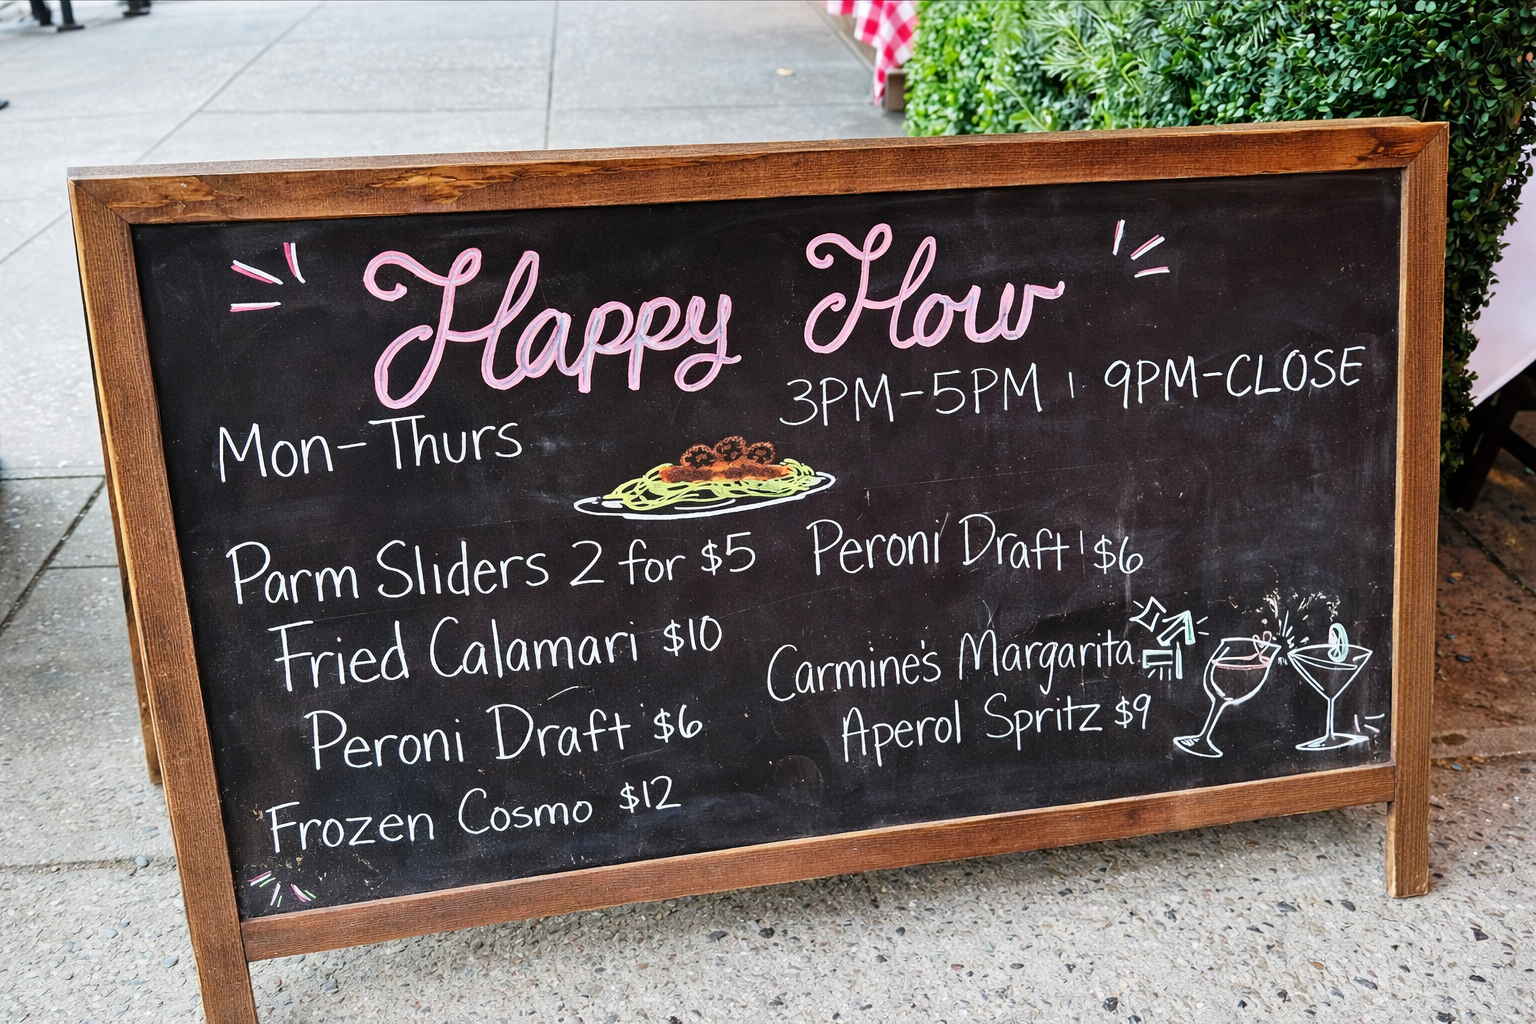 Happy Hour
3PM-5PM | 9PM-CLOSE
Mon-Thurs
Parm Sliders 2 for $5
Fried Calamari $10
Peroni Draft $6
Frozen Cosmo $12
Peroni Draft $6
Carmine's Margarita
Aperol Spritz $9